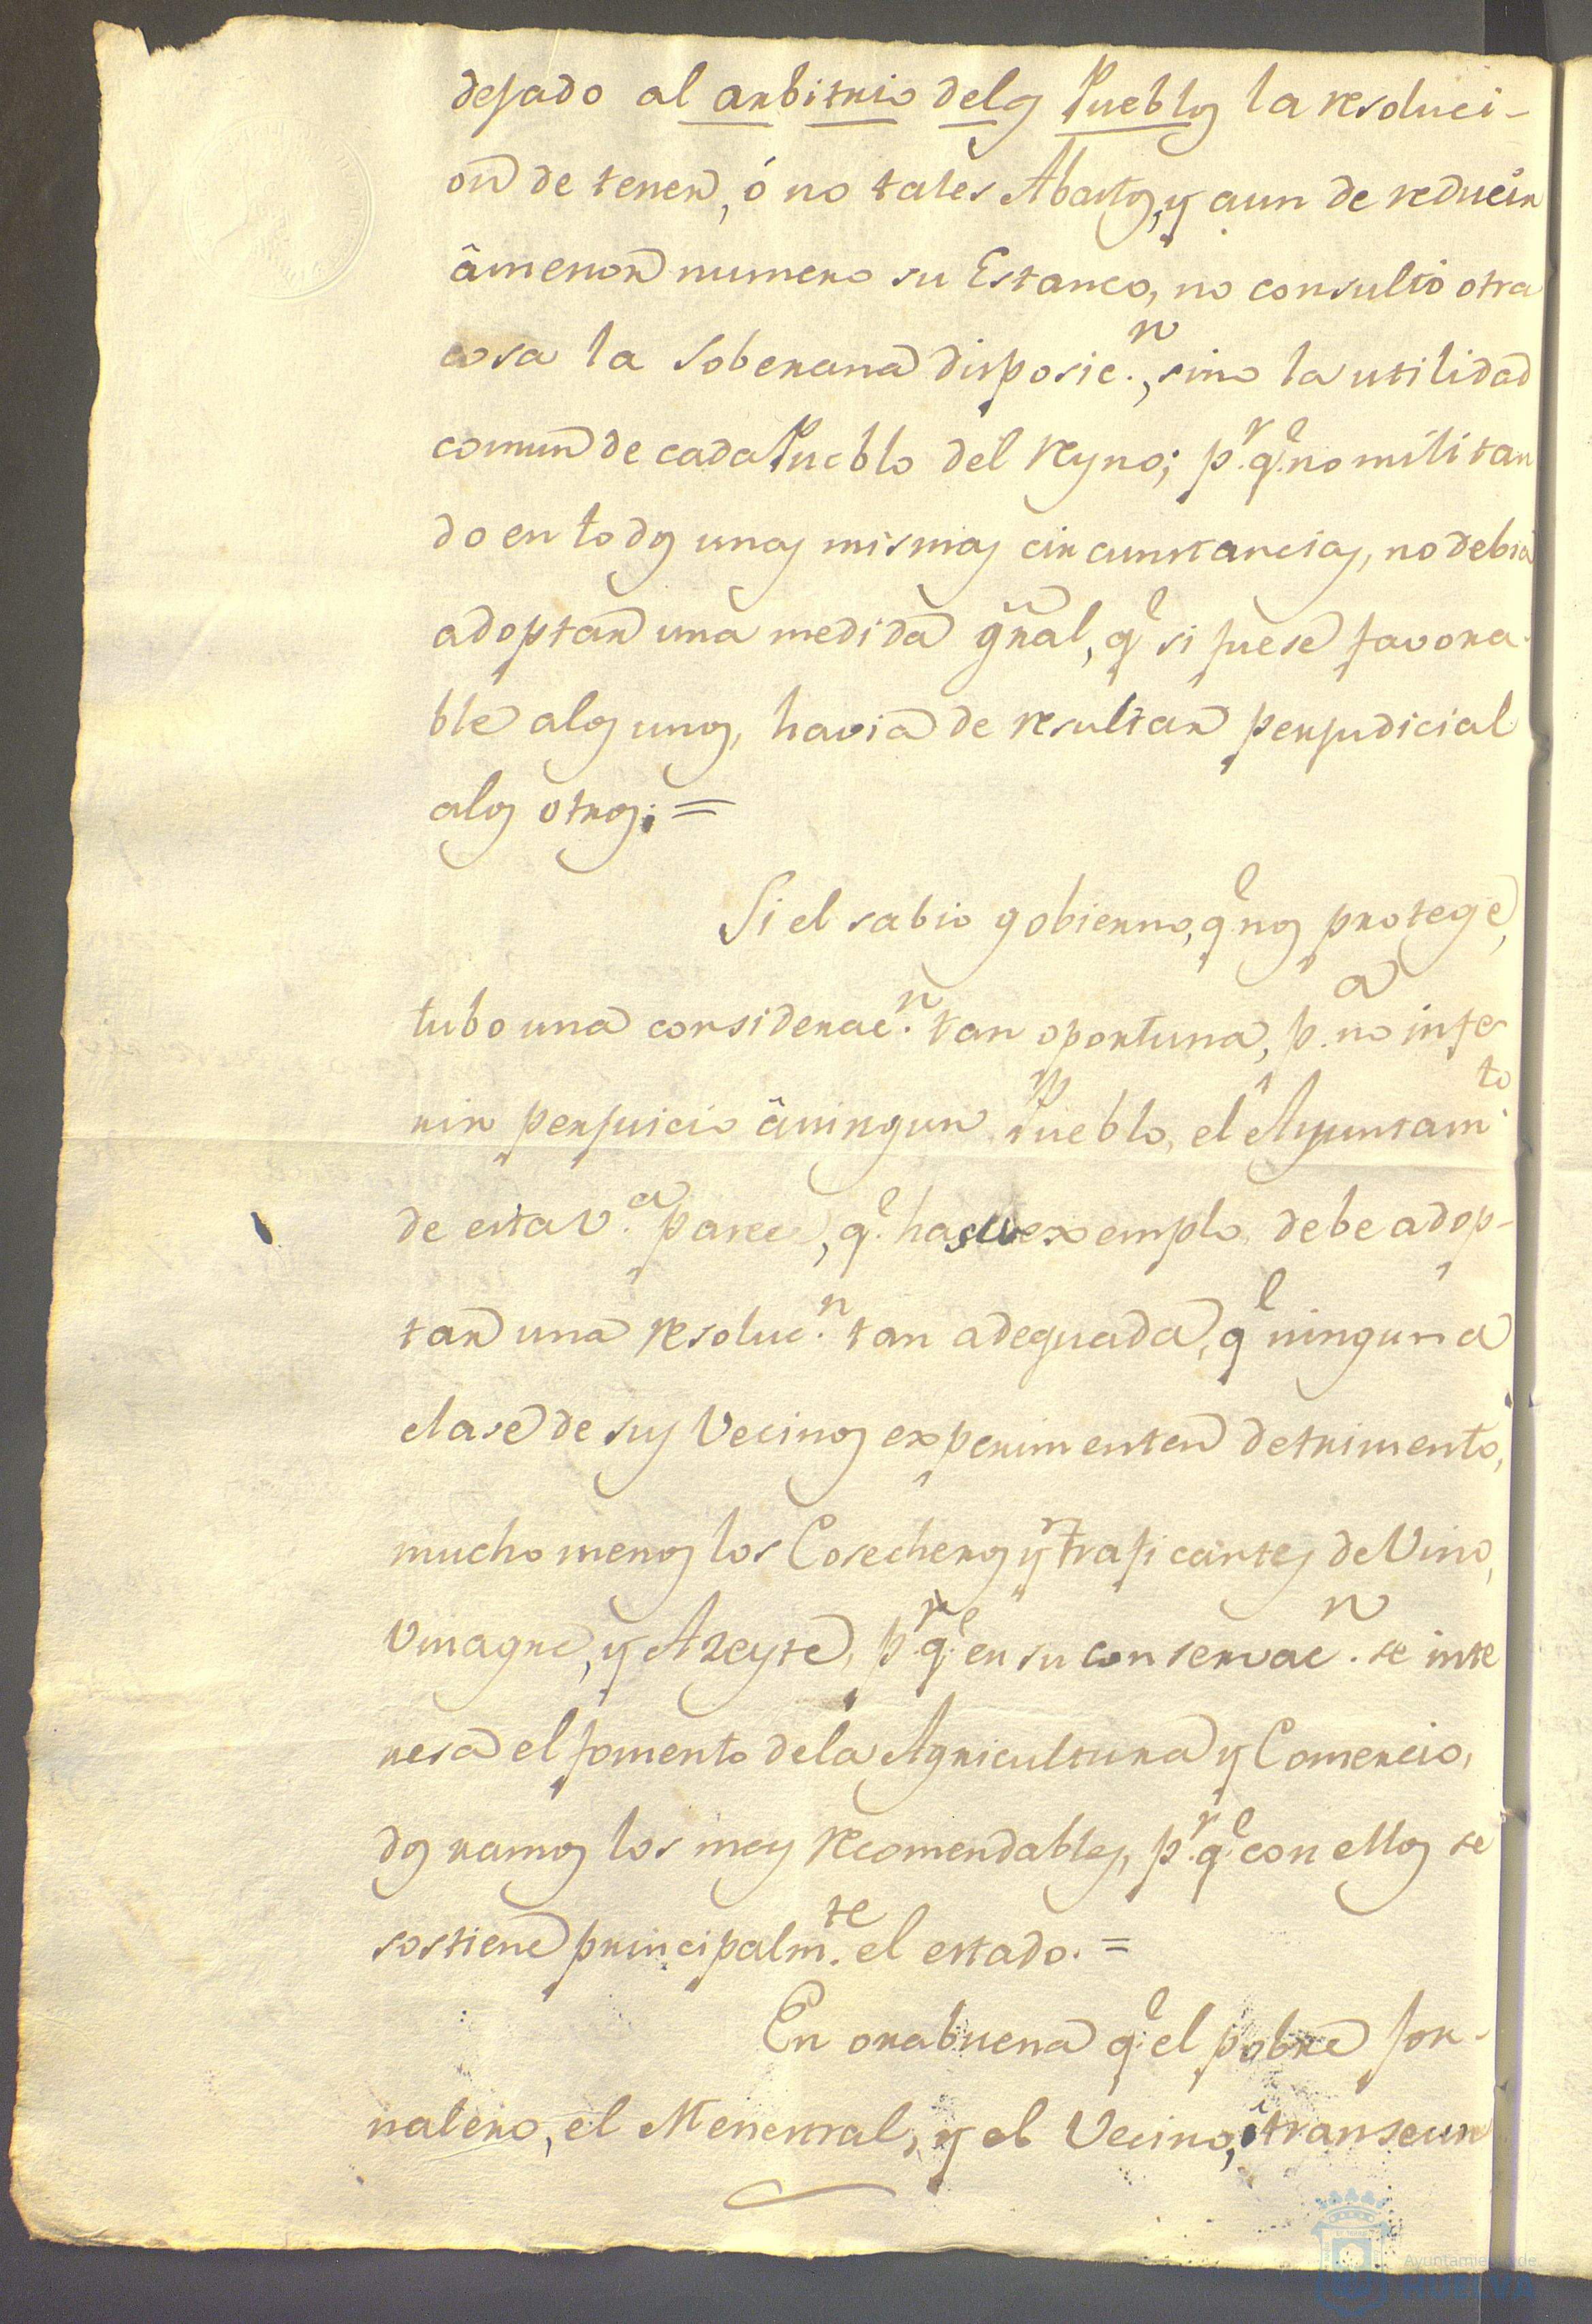 dejado al arbitrio delos Pueblos la resoluci-
on de tener, ó no tales Abastos, y aun de reducir
âmenor numero su Estanco, no consultó otra
cosa la Soberana disposic.n, sino la utilidad
comun de cada Pueblo del Reyno; p.r q.e no militan
do en todos unas mismas circunstancias, no debia
adoptar una medida gñral, q.e si fuese favora-
ble alos unos, havia de resultar perjudicial
alos otros; =
Si el sabio gobierno, q.e nos protege,
tubo una considerac.n tan oportuna, p.a no infe-
rir perjuicio âningun Pueblo, el Ayuntam.to
de esta V.a parece, q.e ha su exemplo debe adop-
tar una resoluc.n tan adequada, q.e ninguna
clase de sus Vecinos experimenten detrimento,
mucho menos los Cosecheros y traficantes de Vino,
Vinagre, y Azeyte, p.r q.e en su conservac.n se inte
resa el fomento dela Agricultura y Comercio,
dos ramos los mas recomendables, p.r q.e con ellos se
sostiene principalm.te el estado. =
En orabuena q.e el pobre jor-
nalero, el Menestral, y el Vecino, ó transeun
Ayuntamiento de
HUELVA